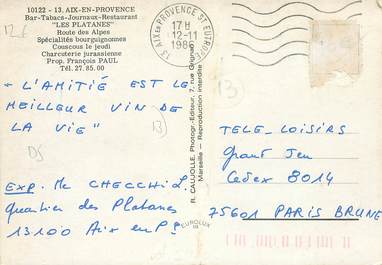 10122 - 13. AIX-EN-PROVENCE
Bar-Tabacs-Journaux-Restaurant
"LES PLATANES"
Route des Alpes
Spécialités bourguignonnes
Couscous le jeudi
Charcuterie jurassienne
Prop. François PAUL
Tél. 27.85.00
12 €
"L'AMITIÉ EST LE
MEILLEUR VIN DE
LA VIE"
13
DS
EXP. Mc CHECCHI L.
Quartier des Platanes
13100 Aix en Pce
R. CAUJOLLE, Photogr.-Editeur, 7, rue Grignan
Marseille - Reproduction interdite
EUROLUX
13 AIX EN PROVENCE ST EUTROPE
17 H
12-11
1986
13
TELE-LOISIRS
Grant Jeu
Cedex 8014
75601 PARIS BRUNE